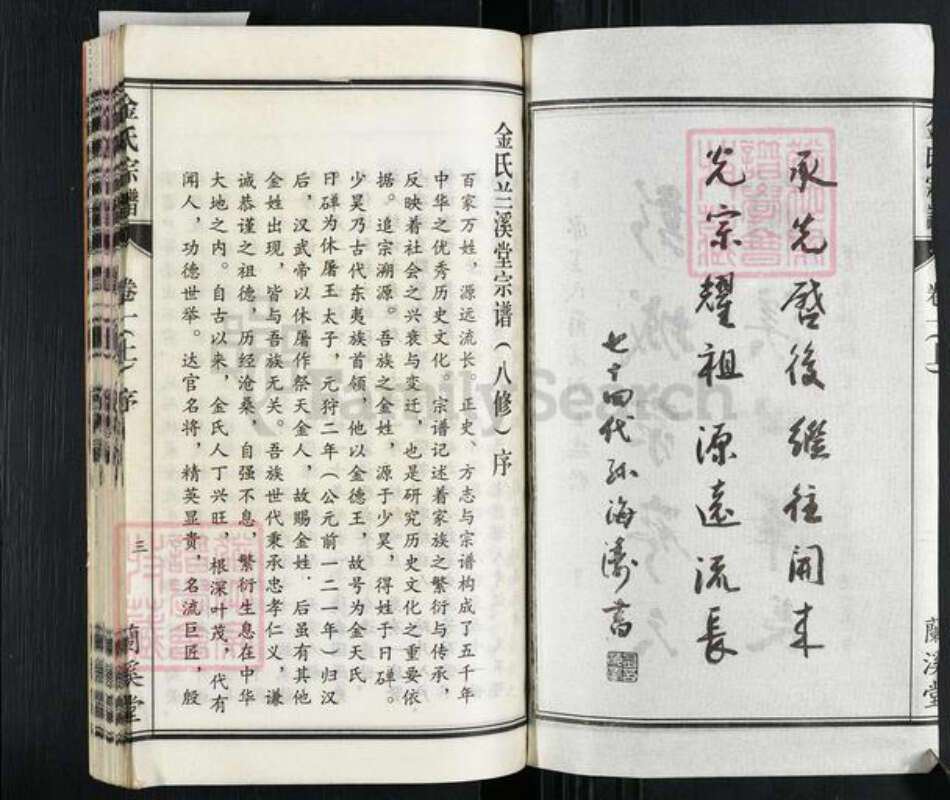 承先啓後繼往開来
光宗耀祖源遠流長
七十四代孙海濤書
金氏兰溪堂宗谱（八修）序
百家万姓，源远流长。正史、方志与宗谱构成了五千年
中华之优秀历史文化。宗谱记述着家族之繁衍与传承，
反映着社会之兴衰与变迁，也是研究历史文化之重要依
据。追宗溯源。吾族之金姓，源于少昊，得姓于日磾。
少昊乃古代东夷族首领，他以金德王，故号为金天氏，
日磾为休屠王太子，元狩二年（公元前一二一年）归汉
后，汉武帝以休屠作祭天金人，故赐金姓。后虽有其他
金姓出现，皆与吾族无关。吾族世代秉承忠孝仁义，谦
诚恭谨之祖德，历经沧桑，自强不息，繁衍生息在中华
大地之内。自古以来，金氏人丁兴旺，根深叶茂，代有
闻人，功德世举。达官名将，精英显贵，名流巨匠，殷
金氏宗譜
卷一（上）序
三
蘭溪堂
FamilySearch